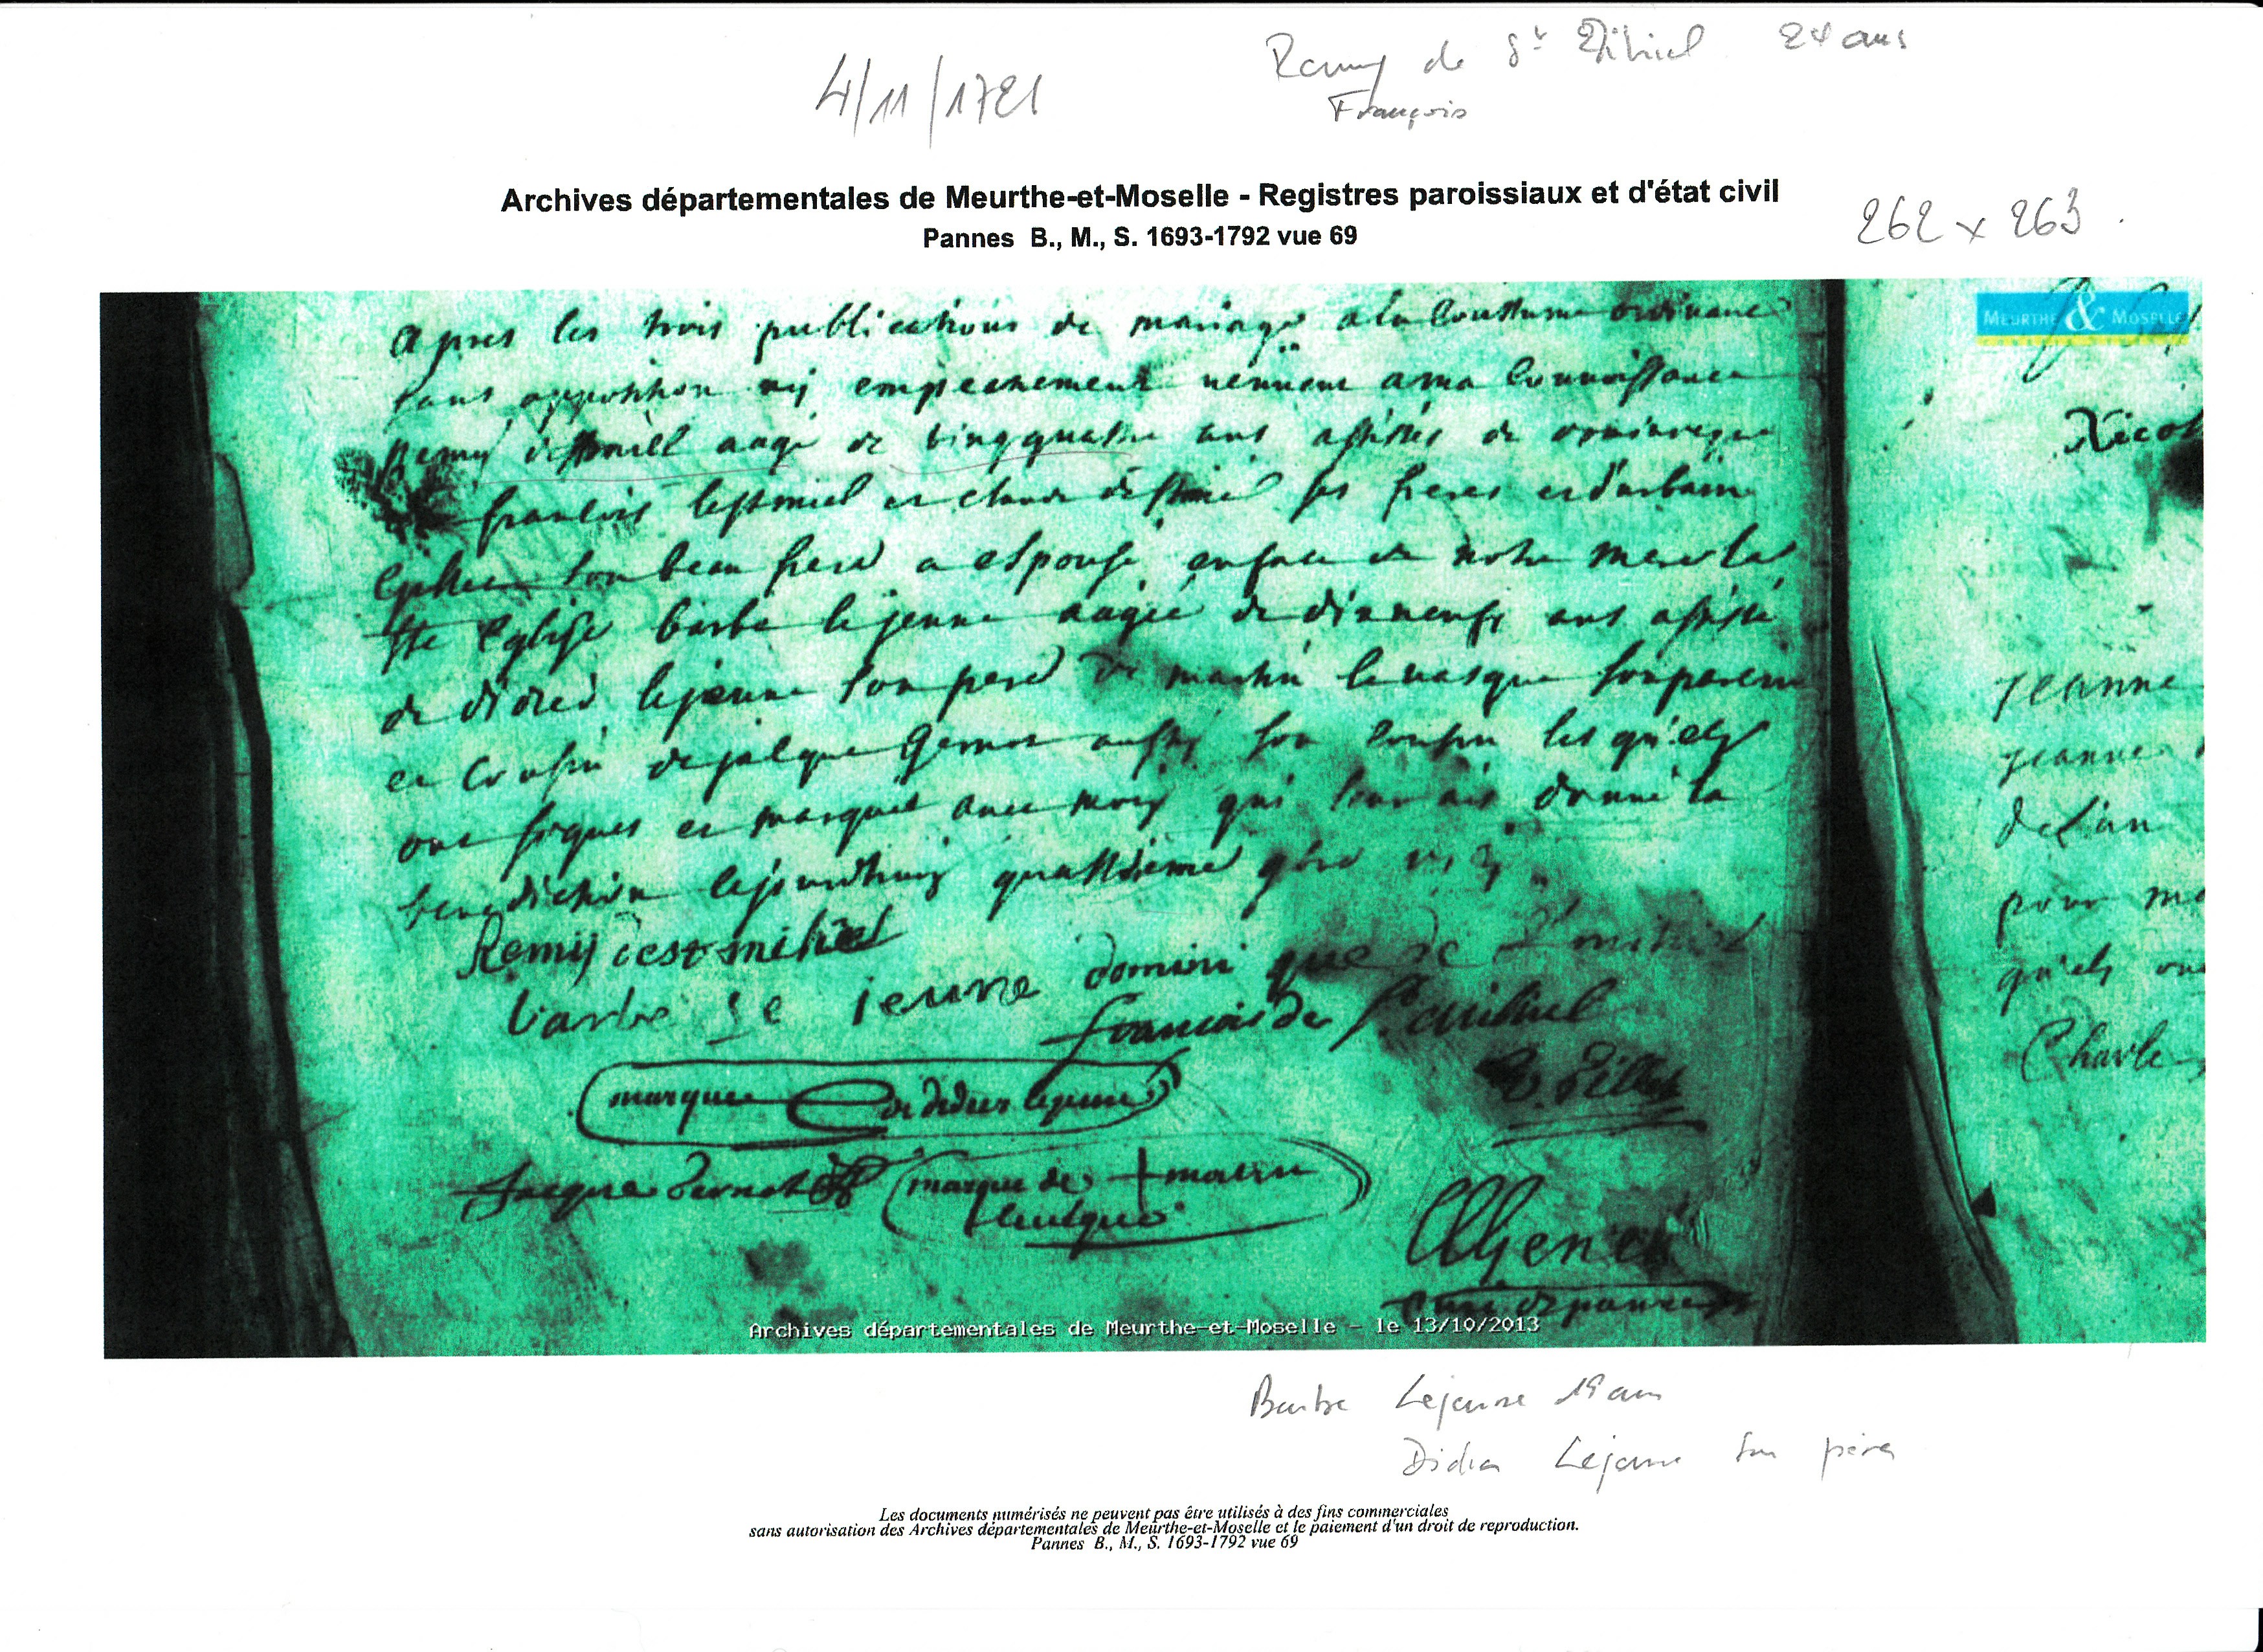 4/11/1721
Remy de St Mihiel 24 ans
François
Archives départementales de Meurthe-et-Moselle - Registres paroissiaux et d'état civil
Pannes B., M., S. 1693-1792 vue 69
262 x 263.
MEURTHE & MOSELLE
apres les trois publications de mariage a la Coustume ordinaire
sans opposition nij empechement a ma Connoissance
Remij aagé de vingquatre ans assistés de
francois et claude ses freres et durbain
son beau frere a espousé enface de notre mere la
ste Eglise barbe lejeune aagée de dixneufs ans assisté
de lejeune son pere de martin son parent
et Cousin de jalque aussij son Cousin lesquels
ont signes et marquet avec moij qui leur ais donné la
benediction quattrieme
Remij destmihiel
barbe Le jeune dominique de
francois de St mihiel
marque de didier lejeune
Jacque marque de + martin
Nicol
jeanne
jeanne
de l'an
pour ma
quels on
Charle
Archives départementales de Meurthe-et-Moselle - le 13/10/2013
Barbe Lejeune 19 ans
Didier Lejeune son père
Les documents numérisés ne peuvent pas être utilisés à des fins commerciales
sans autorisation des Archives départementales de Meurthe-et-Moselle et le paiement d'un droit de reproduction.
Pannes B., M., S. 1693-1792 vue 69